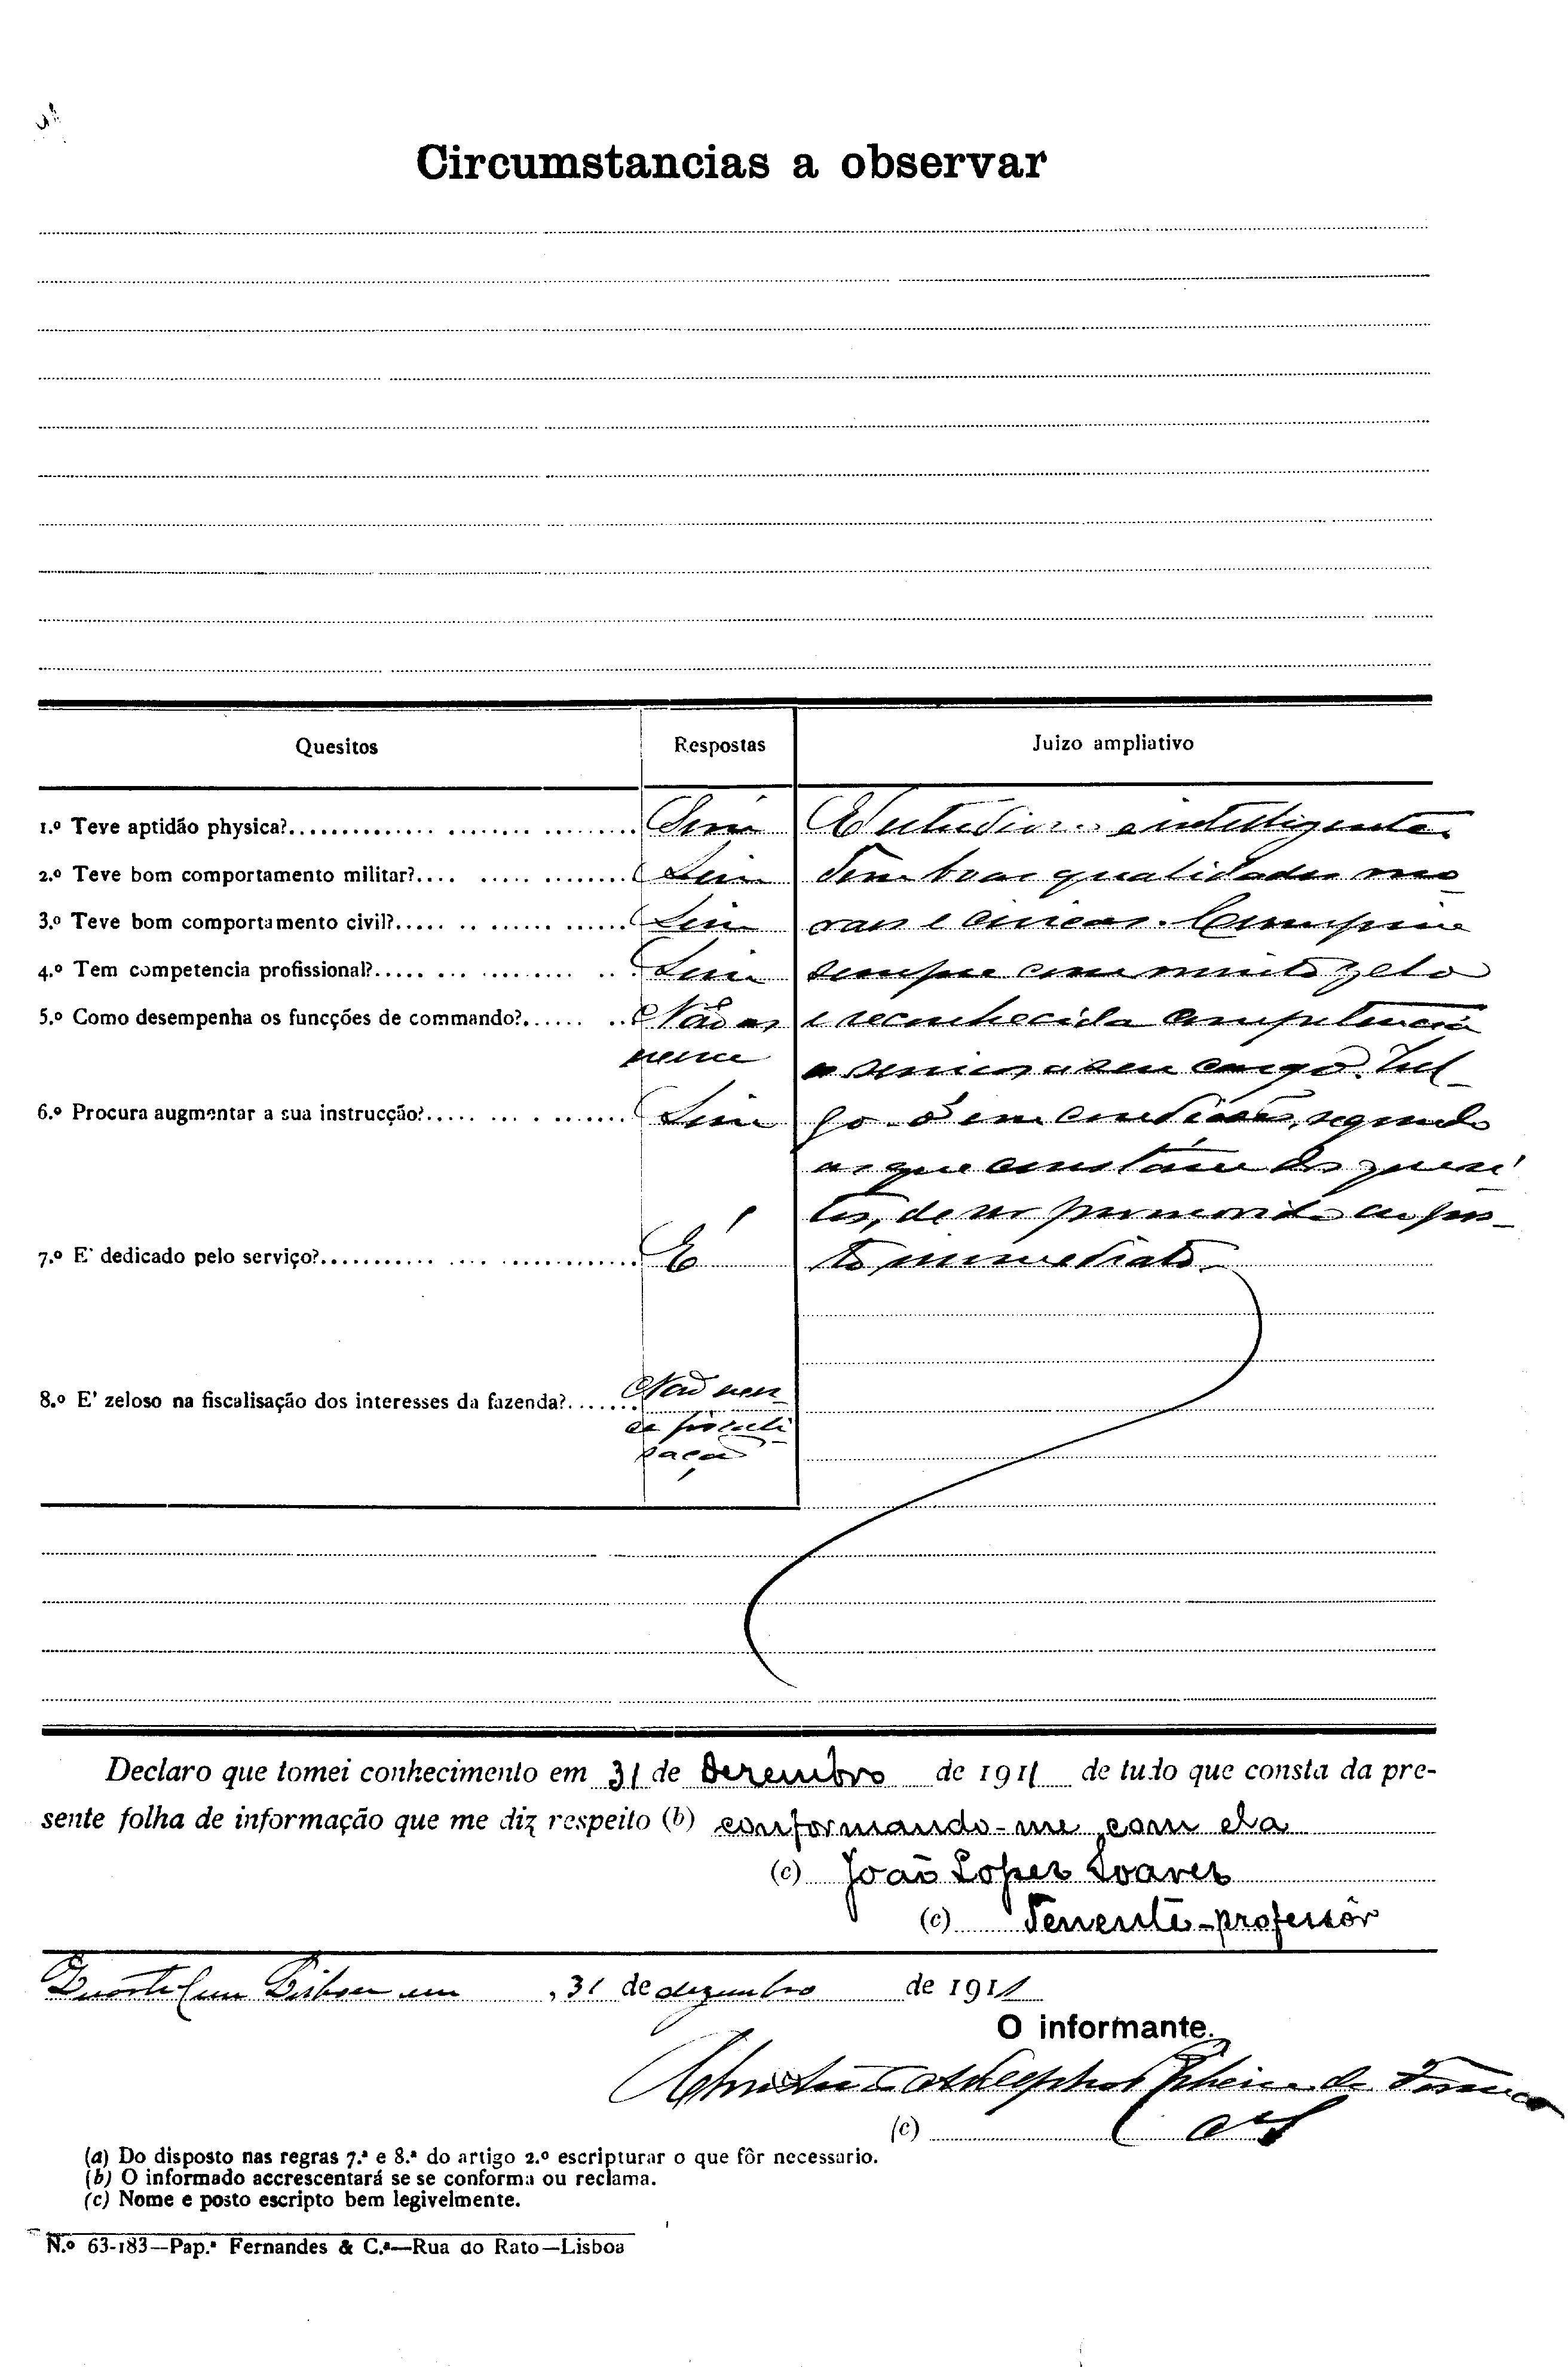 Circumstancias a observar
Quesitos Respostas Juizo ampliativo
1.º Teve aptidão physica? Sim Estudioso e intelligente.
2.º Teve bom comportamento militar? Sim Tem boas qualidades mo
3.º Teve bom comportamento civil? Sim raes e civicas. Cumpriu
4.º Tem competencia profissional? Sim sempre com muito zelo
5.º Como desempenha os funcções de commando? Não as e reconhecida competencia
exerce o serviço a seu cargo. Jul-
6.º Procura augmentar a sua instrucção? Sim go-o em condições, segundo
as que constam dos quesi
tos, de ser promovido ao pos-
7.º E' dedicado pelo serviço? E' to immediato.
8.º E' zeloso na fiscalisação dos interesses da fazenda? Não exer
ce fiscali
sação
Declaro que tomei conhecimento em 31 de Dezembro de 1911 de tudo que consta da pre-
sente folha de informação que me diz respeito (b) conformando-me com ela
(c) João Lopes Soares
(c) Tenente-professôr
Quartel em Lisboa em, 31 de dezembro de 1911
O informante.
(c)
(a) Do disposto nas regras 7.ª e 8.ª do artigo 2.º escripturar o que fôr necessario.
(b) O informado accrescentará se se conforma ou reclama.
(c) Nome e posto escripto bem legivelmente.
N.º 63-183—Pap.ª Fernandes & C.ª—Rua do Rato—Lisboa